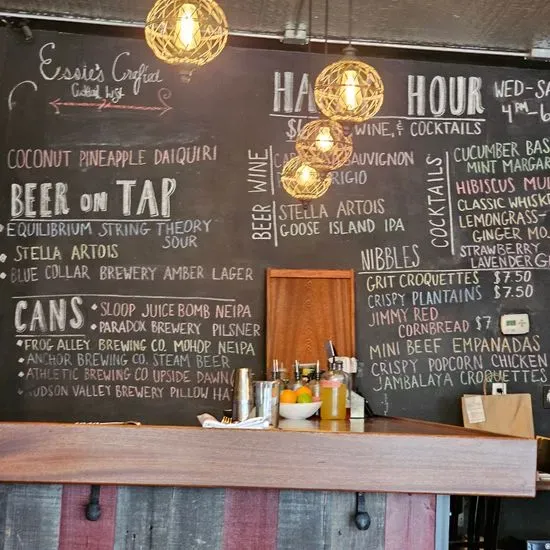 Essie's Crafted
Cocktail List
COCONUT PINEAPPLE DAIQUIRI
BEER ON TAP
• EQUILIBRIUM STRING THEORY
SOUR
• STELLA ARTOIS
• BLUE COLLAR BREWERY AMBER LAGER
CANS
• SLOOP JUICE BOMB NEIPA
• PARADOX BREWERY PILSNER
• FROG ALLEY BREWING CO. MDHOP NEIPA
• ANCHOR BREWING CO. STEAM BEER
• ATHLETIC BREWING CO UPSIDE DAWN
• HUDSON VALLEY BREWERY PILLOW HA
HA HOUR
WED-SA
4PM-6
WINE, & COCKTAILS
BEER WINE
CA SAUVIGNON
RIGIO
STELLA ARTOIS
GOOSE ISLAND IPA
COCKTAILS
CUCUMBER BAS
MINT MARGAR
HIBISCUS MUL
CLASSIC WHISK
LEMONGRASS-
GINGER MO
STRAWBERRY
LAVENDER G
NIBBLES
GRIT CROQUETTES $7.50
CRISPY PLANTAINS $7.50
JIMMY RED
CORNBREAD $7
MINI BEEF EMPANADAS
CRISPY POPCORN CHICKEN
JAMBALAYA CROQUETTES